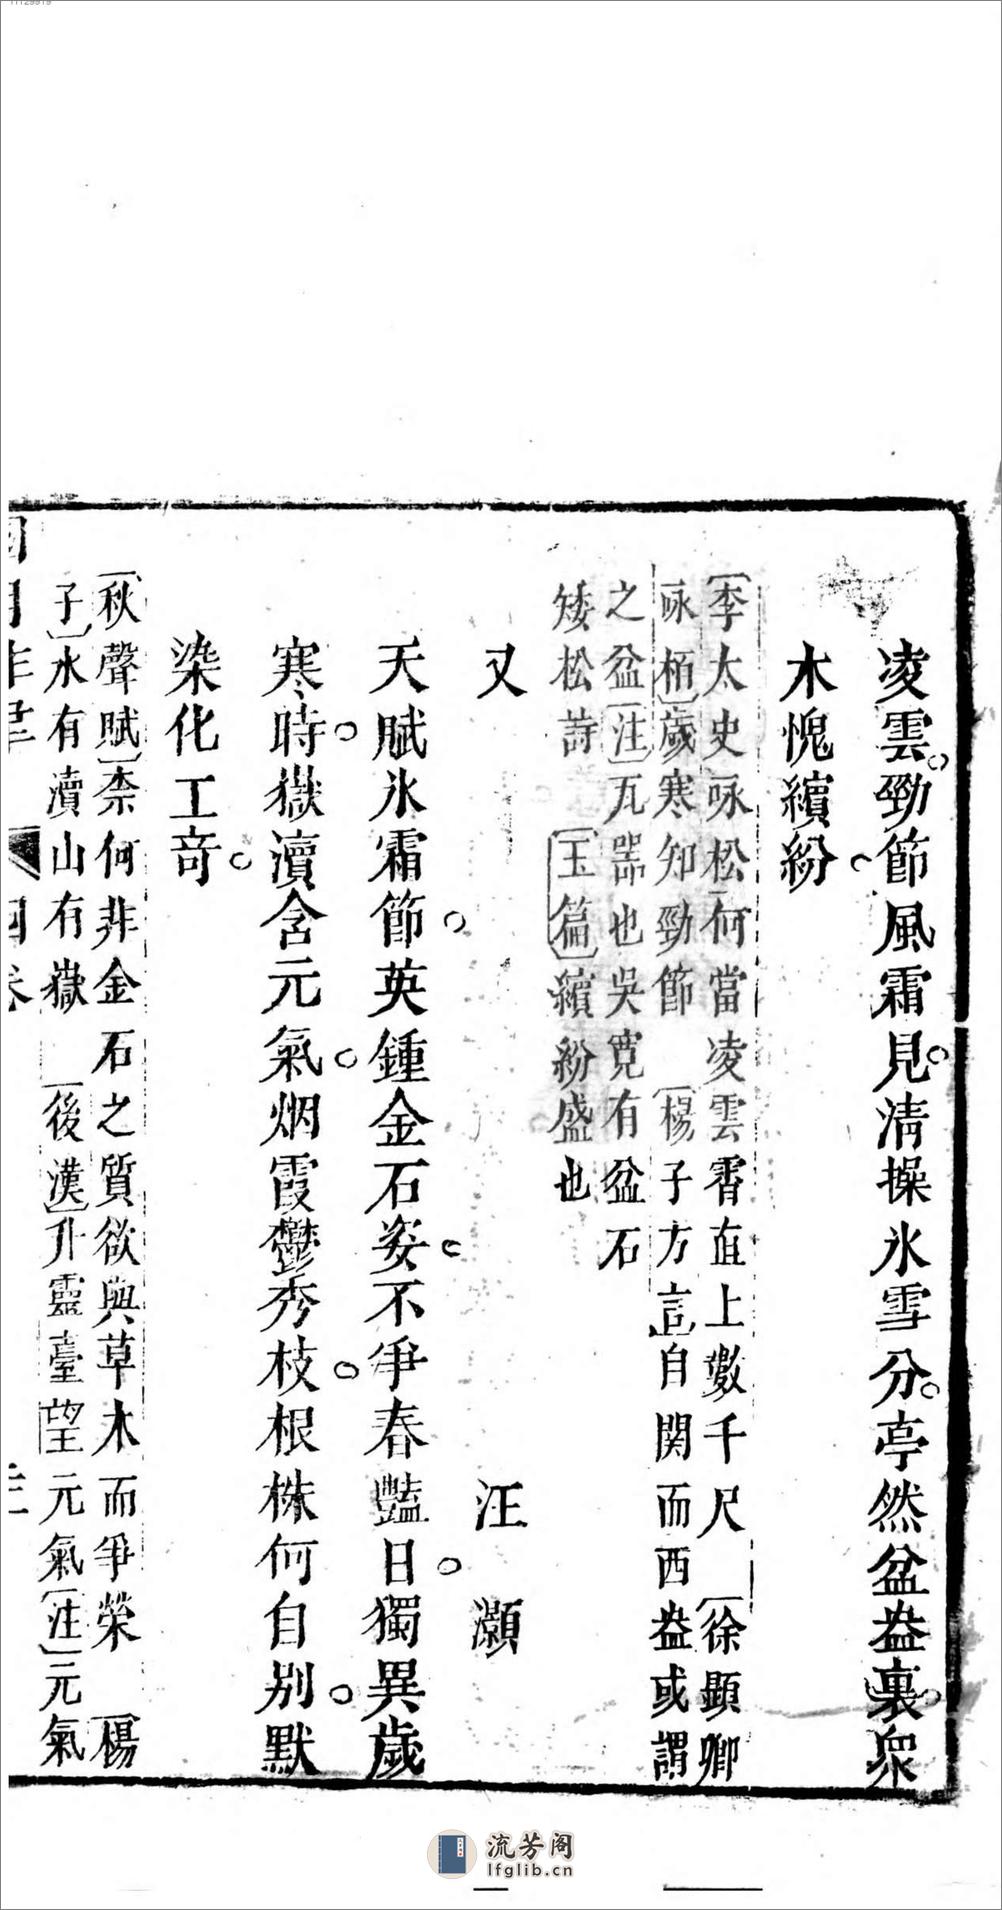 凌雲勁節風霜見清操氷雪分亭然盆盎裏衆
木愧繽紛
〔李太史咏松〕何當凌雲霄直上數千尺〔徐顯卿
咏栢〕歲寒知勁節〔楊子方言〕自関而西盎或謂
之盆〔注〕瓦噐也吳寛有盆石
矮松詩〔玉篇〕繽紛盛也
又 汪灝
天賦氷霜節英鍾金石姿不爭春豔日獨異歲
寒時嶽瀆含元氣烟霞鬱秀枝根株何自别默
染化工竒
〔秋聲賦〕柰何非金石之質欲與草木而爭榮〔楊
子〕水有瀆山有嶽〔後漢〕升靈臺望元氣〔注〕元氣
四卷
流芳阁
lfglib.cn
11129919